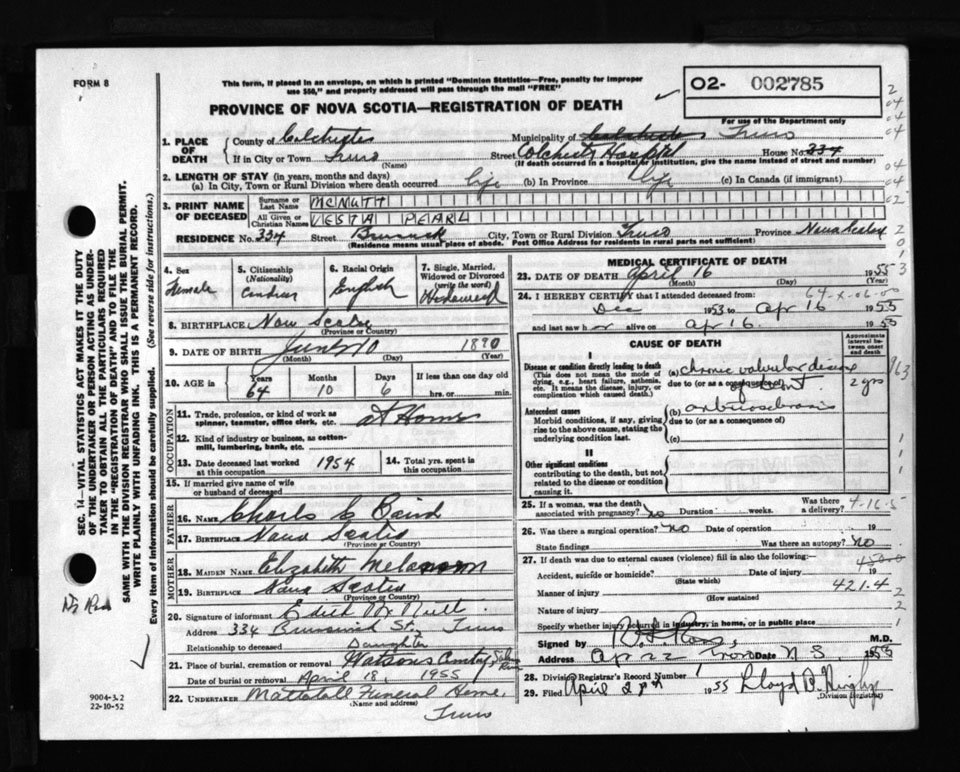 FORM 8
This form, if placed in an envelope, on which is printed "Dominion Statistics—Free, penalty for improper
use $50," and properly addressed will pass through the mail "FREE"
PROVINCE OF NOVA SCOTIA—REGISTRATION OF DEATH
02- 002785
For use of the Department only
1. PLACE OF DEATH
County of Colchester Municipality of Truro
If in City or Town Truro Street Colchester Hospital House No. 334
(Name) (If death occurred in a hospital or institution, give the name instead of street and number)
2. LENGTH OF STAY (in years, months and days)
(a) In City, Town or Rural Division where death occurred life (b) In Province life (c) In Canada (if immigrant)
3. PRINT NAME OF DECEASED
Surname or Last Name MCNUTT
All Given or Christian Names VESTA PEARL
RESIDENCE No. 334 Street City, Town or Rural Division Truro Province Nova Scotia
(Residence means usual place of abode. Post Office Address for residents in rural parts not sufficient)
4. Sex
Female
5. Citizenship (Nationality)
6. Racial Origin
English
7. Single, Married, Widowed or Divorced (write the word)
Widowed
8. BIRTHPLACE Nova Scotia
(Province or Country)
9. DATE OF BIRTH June 10 1890
(Month) (Day) (Year)
10. AGE in
Years Months Days If less than one day old
64 10 6 hrs. or min.
OCCUPATION
11. Trade, profession, or kind of work as spinner, teamster, office clerk, etc. at Home
12. Kind of industry or business, as cotton-mill, lumbering, bank, etc.
13. Date deceased last worked at this occupation 1954
14. Total yrs. spent in this occupation
15. If married give name of wife or husband of deceased
FATHER
16. Name Charles C Baird
17. Birthplace Nova Scotia
(Province or Country)
MOTHER
18. Maiden Name Elizabeth
19. Birthplace Nova Scotia
(Province or Country)
20. Signature of informant Edith McNutt
Address 334 Brunswick St., Truro
Relationship to deceased Daughter
21. Place of burial, cremation or removal Watsons
Date of burial or removal April 18, 1955
22. UNDERTAKER Mattatall Funeral Home,
(Name and address)
Truro
MEDICAL CERTIFICATE OF DEATH
23. DATE OF DEATH April 16 1955
(Month) (Day)
24. I HEREBY CERTIFY that I attended deceased from
Dec 1953 to Apr 16 1955
and last saw h er alive on Apr 16 1955
CAUSE OF DEATH
Approximate interval between onset and death
I
Disease or condition directly leading to death
(This does not mean the mode of dying, e.g., heart failure, asthenia, etc. It means the disease, injury, or complication which caused death.)
(a) chronic valvular disease
due to (or as a consequence of)
of heart
2 yrs
Antecedent causes
Morbid conditions, if any, giving rise to the above cause, stating the underlying condition last.
(b) arteriosclerosis
due to (or as a consequence of)
(c)
II
Other significant conditions
contributing to the death, but not related to the disease or condition causing it.
25. If a woman, was the death associated with pregnancy? no Duration weeks. Was there a delivery?
4-16-5
26. Was there a surgical operation? no Date of operation 19
State findings Was there an autopsy? no
27. If death was due to external causes (violence) fill in also the following:
Accident, suicide or homicide? Date of injury 19
(State which)
Manner of injury 421.4
(How sustained
Nature of injury
Specify whether injury occurred in industry, in home, or in public place
Signed by M.D.
Address Truro N S Date Apr 22 1955
28. Division Registrar's Record Number
29. Filed April 1955 Lloyd B.
(Division Registrar)
SEC. 14—VITAL STATISTICS ACT MAKES IT THE DUTY
OF THE UNDERTAKER OR PERSON ACTING AS UNDER-
TAKER TO OBTAIN ALL THE PARTICULARS REQUIRED
IN THE "REGISTRATION OF DEATH" AND TO FILE THE
SAME WITH THE DIVISION REGISTRAR WHO SHALL ISSUE THE BURIAL PERMIT.
WRITE PLAINLY WITH UNFADING INK. THIS IS A PERMANENT RECORD.
Every item of information should be carefully supplied. (See reverse side for instructions.)
9004-3.2
22-10-52